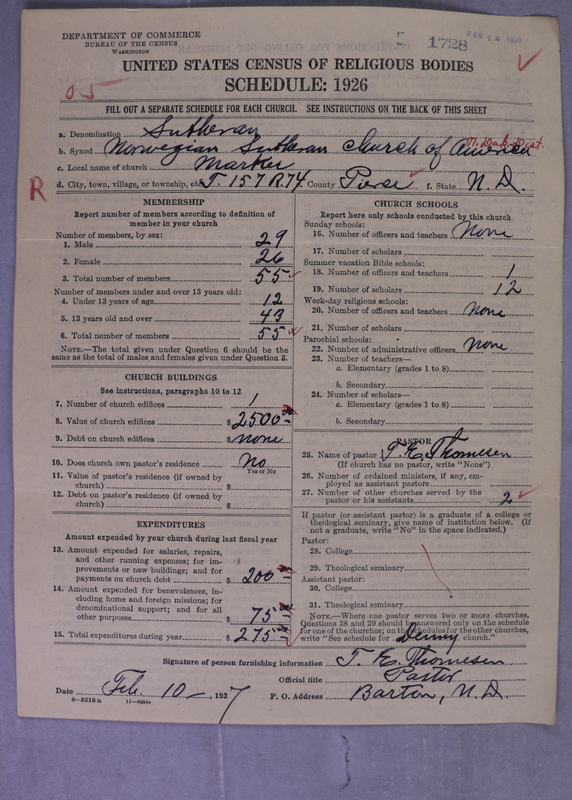 DEPARTMENT OF COMMERCE
BUREAU OF THE CENSUS
WASHINGTON
1728
FEB 14 1927
UNITED STATES CENSUS OF RELIGIOUS BODIES
SCHEDULE: 1926
05
FILL OUT A SEPARATE SCHEDULE FOR EACH CHURCH. SEE INSTRUCTIONS ON THE BACK OF THIS SHEET
a. Denomination Lutheran
N. Dak. Dist.
b. Synod Norwegian Lutheran Church of America
c. Local name of church
d. City, town, village, or township, etc T. 157 R. 74. County Pierce f. State N. D.
R
MEMBERSHIP
Report number of members according to definition of
member in your church
Number of members, by sex:
1. Male 29
2. Female 26
3. Total number of members 55
Number of members under and over 13 years old:
4. Under 13 years of age 12
5. 13 years old and over 43
6. Total number of members 55
NOTE.—The total given under Question 6 should be the
same as the total of males and females given under Question 3.
CHURCH BUILDINGS
See instructions, paragraphs 10 to 12
7. Number of church edifices 1
8. Value of church edifices $ 2500
9. Debt on church edifices $ none
10. Does church own pastor's residence No
Yes or No
11. Value of pastor's residence (if owned by
church) $
12. Debt on pastor's residence (if owned by
church) $
EXPENDITURES
Amount expended by your church during last fiscal year
13. Amount expended for salaries, repairs,
and other running expenses; for im-
provements or new buildings; and for
payments on church debt $ 200
14. Amount expended for benevolences, in-
cluding home and foreign missions; for
denominational support; and for all
other purposes $ 75
15. Total expenditures during year $ 275
CHURCH SCHOOLS
Report here only schools conducted by this church
Sunday schools:
16. Number of officers and teachers None
17. Number of scholars
Summer vacation Bible schools:
18. Number of officers and teachers 1
19. Number of scholars 12
Week-day religious schools:
20. Number of officers and teachers None
21. Number of scholars
Parochial schools:
22. Number of administrative officers None
23. Number of teachers—
a. Elementary (grades 1 to 8)
b. Secondary
24. Number of scholars—
a. Elementary (grades 1 to 8)
b. Secondary
PASTOR
25. Name of pastor T. E. Thomesen
(If church has no pastor, write "None")
26. Number of ordained ministers, if any, em-
ployed as assistant pastors
27. Number of other churches served by the
pastor or his assistants 2
If pastor (or assistant pastor) is a graduate of a college or
theological seminary, give name of institution below. (If
not a graduate, write "No" in the space indicated.)
Pastor:
28. College
29. Theological seminary
Assistant pastor:
30. College
31. Theological seminary
NOTE.—Where one pastor serves two or more churches,
Questions 28 and 29 should be answered only on the schedule
for one of the churches; on the schedules for the other churches,
write "See schedule for Denny church."
Signature of person furnishing information T. E. Thomesen
Official title Pastor
Date Feb. 10 —, 1927 P. O. Address Barton, N. D.
8—5518 a 11—9054